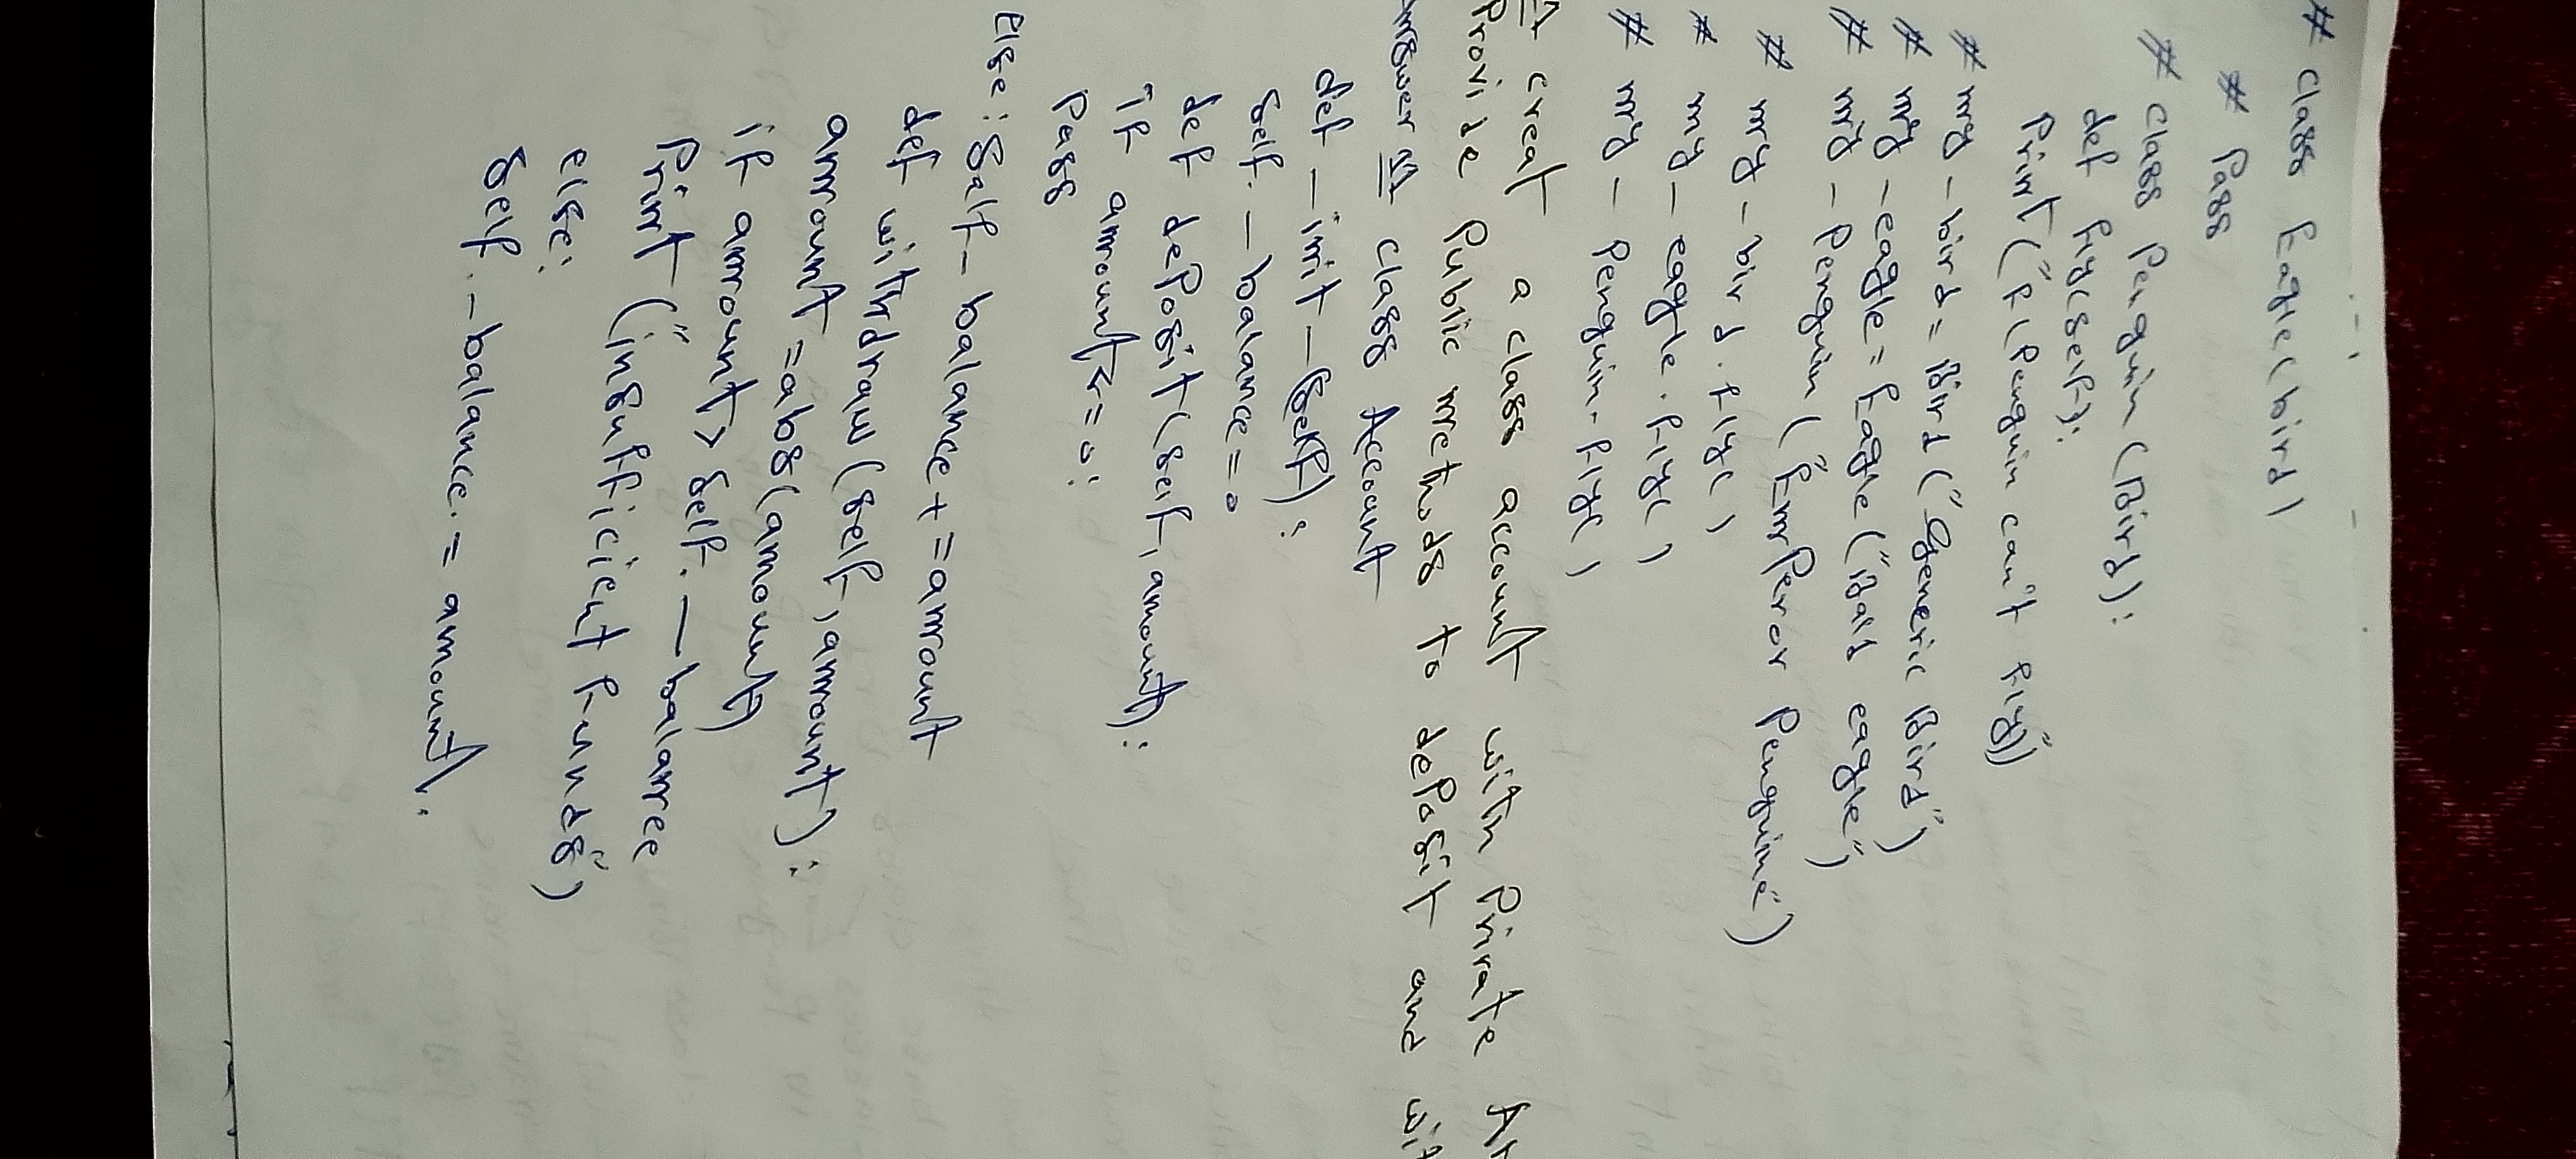 # class Eagle(bird)
# Pass
# class Penguin (Bird):
def fly(self):
Print("f(Penguin can't fly")
# my-bird = Bird ("Generic Bird")
# my-eagle = Eagle ("Bald eagle")
# my-Penguin ("EmPeror Penguine")
# my-bird.fly()
# my-eagle.fly()
# my-Penguin-fly()
creat a class account with Private At
Provide Public methods to dePosit and wit
Answer class Account
def _init_(self):
self._balance=0
def dePosit(self, amount):
if amount<=0:
Pass
else: Self-balance+=amount
def withdraw (self, ammount):
amount = abs(amount)
if amount> self.-balance
Print ("insufficient funds")
else:
self.-balance.= amount: